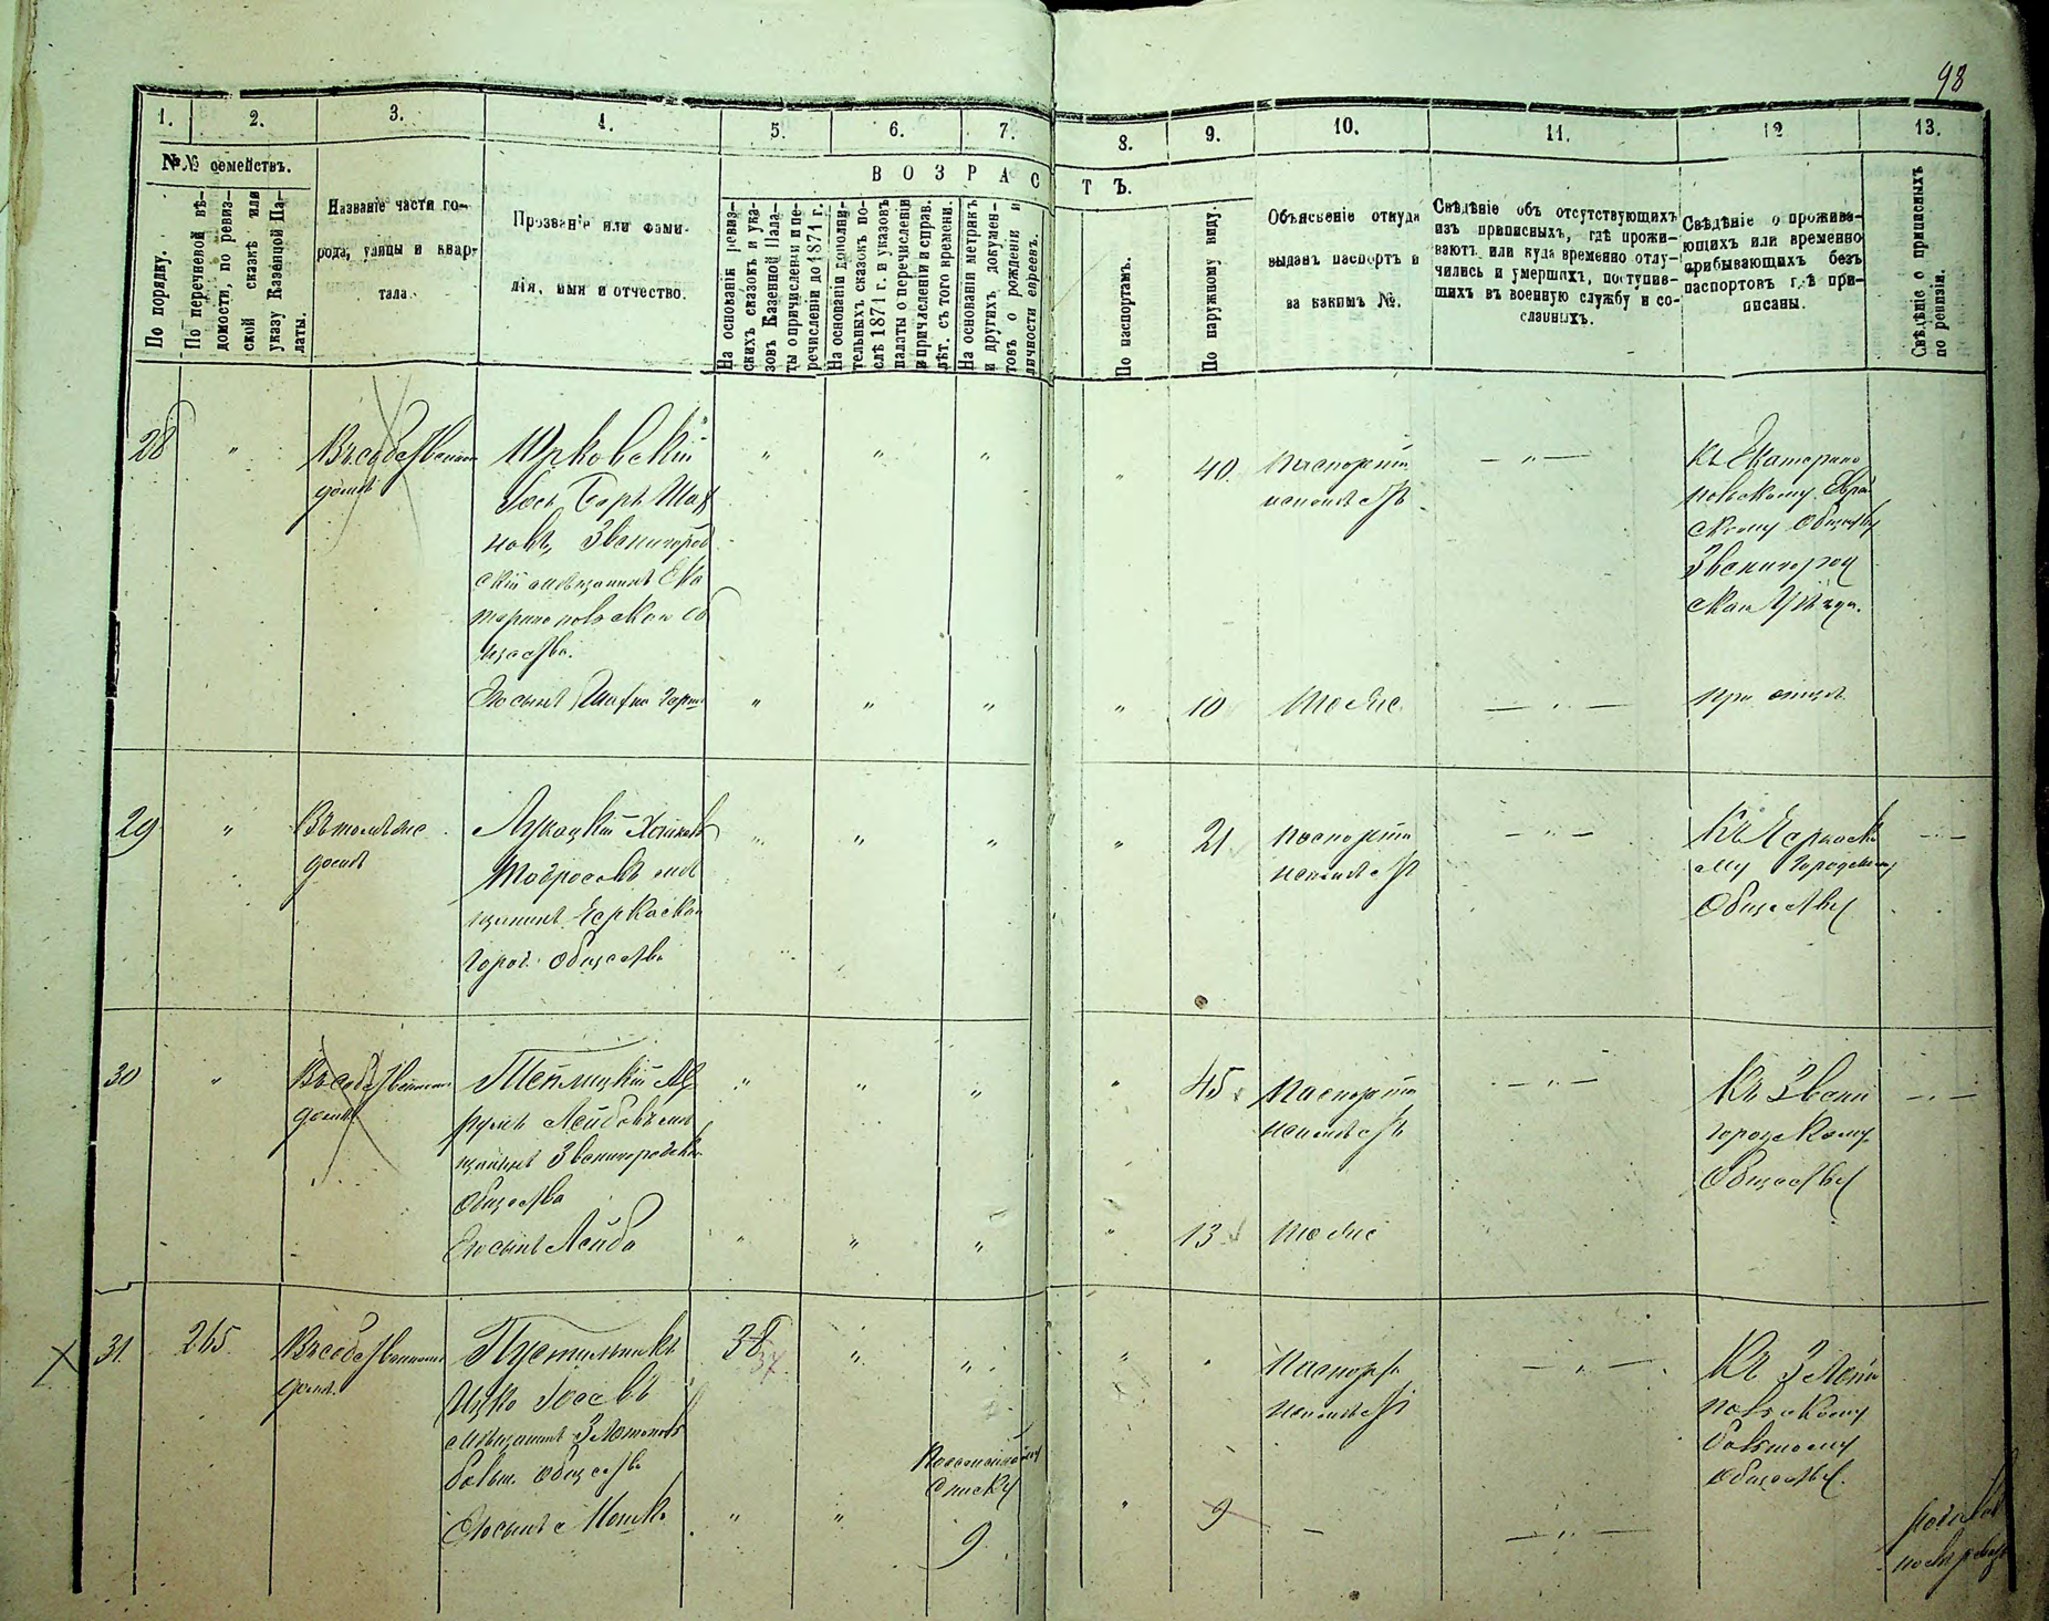 98
1. 2. 3. 4. 5. 6. 7. 8. 9. 10. 11. 12 13.
№№ семействъ.
В О З Р А С Т Ъ.
По порядку.
По перечневой вѣ-
домости, по ревиз-
ской сказкѣ или
указу Казенной Па-
латы.
Названіе части го-
рода, улицы и квар-
тала.
Прозваніе или фами-
лія, имя и отчество.
На основаніи ревиз-
скихъ сказокъ и ука-
зовъ Казенной Пала-
ты о причисленіи и пе-
речисленіи до 1871 г.
На основаніи дополни-
тельныхъ сказокъ по-
слѣ 1871 г. и указовъ
палаты о перечисленіи
и причисленіи и справ.
лѣт. съ того времени.
На основаніи метрикъ
и другихъ докумен-
товъ о рожденіи и
личности евреевъ.
По паспортамъ.
По наружному виду.
Объясненіе откуда
выданъ паспортъ и
за какимъ №.
Свѣдѣніе объ отсутствующихъ
изъ приписныхъ, гдѣ прожи-
ваютъ или куда временно отлу-
чились и умершихъ, поступив-
шихъ въ военную службу и со-
сланныхъ.
Свѣдѣніе о прожива-
ющихъ или временно
прибывающихъ безъ
паспортовъ гдѣ при-
писаны.
Свѣдѣніе о приписныхъ
по ревизіи.
28 " Въ собственномъ
домѣ
Юрковскій
Іось Беръ
новъ, Звенигород
скій мѣщанинъ Ека
теринопольскаго об
щества.
" " " " 40. паспорта
неимѣетъ
— " —
Къ Екатерино
польскому Еврей
скому Обществу
Звенигород
скаго Уѣзда.
Его сынъ
" " " " 10 тоже — " — при отцѣ
29 " Въ томъ же
домѣ
Лукацкій
мѣ
щанинъ Черкаскаго
город. общества
" " " " 21 паспорта
неимѣетъ
— " —
Къ Черкаско
му Городскому
Обществу
— " —
30 " Въ собственномъ
домѣ
Теплицкій Ав
румъ Лейбовъ мѣ
щанинъ Звенигородскаго
Общества
" " " " 45 паспорта
неимѣетъ
— " —
Къ Звени
городскому
Обществу
— " —
Его сынъ Лейба
" " " " 13 тоже
31. 265. Въ собственномъ
домѣ.
Пустильникъ
Ицко Іосевъ
мѣщанинъ Златопол
общества
38
37
" " " " паспорта
неимѣетъ
— " —
Къ Златo
польскому
обществу.
Его сынъ Мошко
" "
списку
9
" 9 — — " —